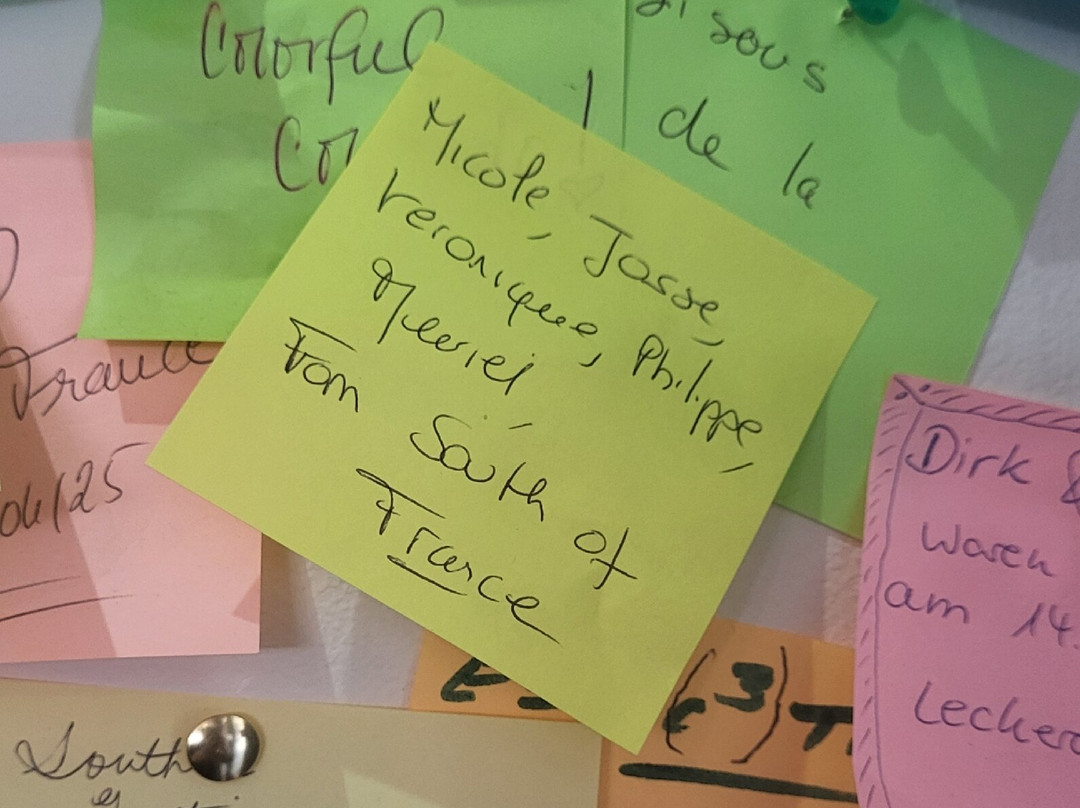 Colorful
Co
si sous
de la
Nicole, Josse,
Veronique, Philippe,
Meuriel
From South of
France
France
04/25
Dirk &
waren
am 14.
Lecker
South